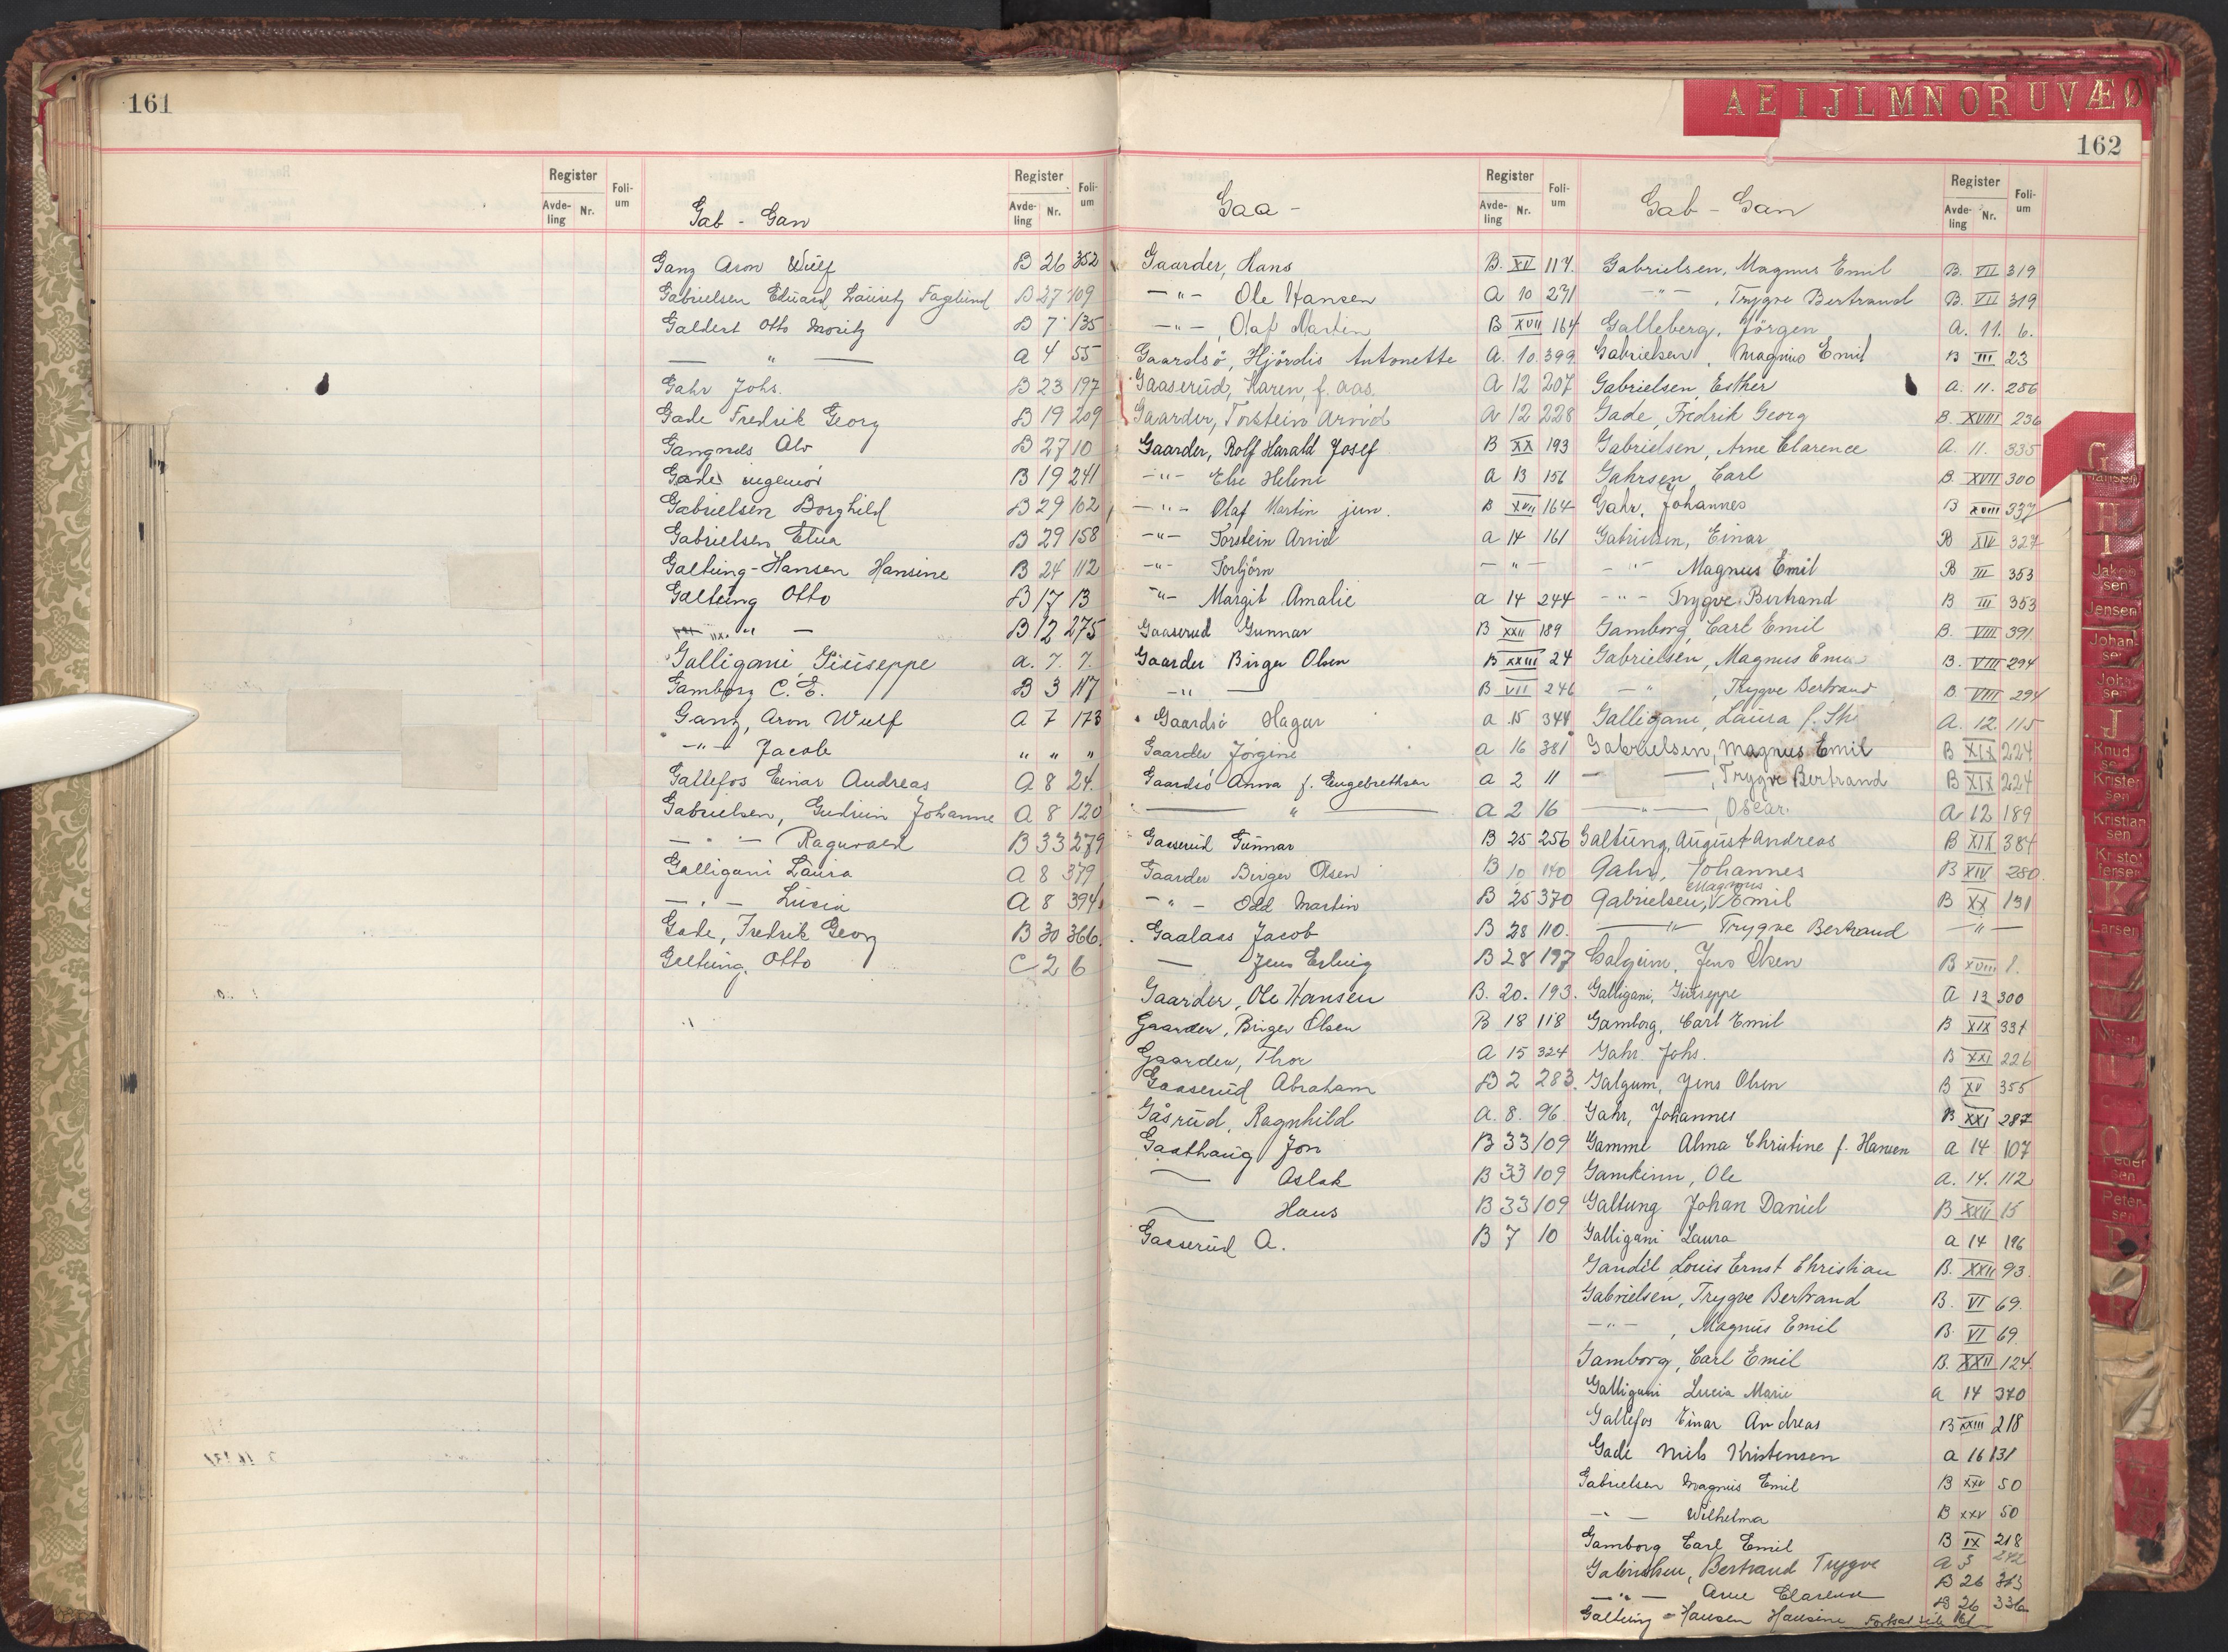 161
Register
Foli-
um
Avde-
ling
Nr.
Gab - Gan
Register
Foli-
um
Avde-
ling
Nr.
Ganz Aron Wulf B 26 352
Gabrielsen Eduard Lauritz Fagelund B 27 109
Galdert Otto Moritz B 7 135
— " — A 4 55
Gahr Johs. B 23 197
Gade Fredrik Georg B 19 209
Gangnæs Alv B 27 10
Gade ingeniör B 19 241
Gabrielsen Borghild B 29 102
Gabrielsen Elisa B 29 158
Galtung-Hansen Hansine B 24 112
Galtung Otto B 17 13
" — B 12 275
Galligani, Giuseppe a. 7. 7.
Gamborg C. E. B 3 117
Ganz, Aron Wulf A 7 173
— " — Jacob " " "
Gallefos Einar Andreas A 8 24.
Gabrielsen, Gudrun Johanne A 8 120
— " — Ragnvald B 33 279
Galligani Laura A 8 379
— " — Lucia A 8 394
Gade, Fredrik Georg B 30 366.
Galtung, Otto C 2 6
AEIJLMNORUVÆØ
162
Gaa -
Register
Foli-
um
Avde-
ling
Nr.
Gaarder, Hans B. XV 114.
— " — Ole Hansen A 10 231
— " —, Olaf Martin B XVII 164
Gaardsö, Hjördis Antonette A. 10. 399
Gaaserud, Karen, f. Aas. A 12 207
Gaarder, Torstein Arvid A 12 228
Gaarder, Rolf Harald Josef B XX 193
— " — Else Helene A 13 156
— " — Olaf Martin jun. B XVII 164
— " — Torstein Arvid a 14 161
— " — Torbjörn — " —
— " — Margit Amalie a 14 244
Gaaserud Gunnar B XXII 189
Gaarder Birger Olsen B XXIII 24
— " — B VII 246
Gaardsö Hagar a 15 344
Gaarder Jörgine a 16 381
Gaardsö Anna f. Engebrethsen A 2 11
— " — A 2 16
Gaaserud Gunnar B 25 256
Gaarder Birger Olsen B 10 140
— " — Odd Martin B 25 370
Gaalaas Jacob B 28 110.
— Jens Erling B 28 197
Gaarder, Ole Hansen B. 20. 193.
Gaarder, Birger Olsen B 18 118
Gaarder, Thor A 15 324
Gaaserud Abraham B 2 283.
Gåsrud, Ragnhild A. 8. 96
Gaathaug Jon B 33 109
— Aslak B 33 109
— Hans B 33 109
Gaaserud A. B 7 10
Gab - Gan
Register
Foli-
um
Avde-
ling
Nr.
Gabrielsen, Magnus Emil B. VII 319
— " —, Trygve Bertrand B. VII 319
Galleberg, Jörgen A. 11. 6.
Gabrielsen, Magnus Emil B III 23
Gabrielsen, Esther A. 11. 286
Gade, Fredrik Georg B. XVIII 236
Gabrielsen, Arne Clarence A. 11. 335
Gahrsen, Carl B. XVII 300
Gahr, Johannes B XVIII 337
Gabrielsen, Einar B XIV 327
— " — Magnus Emil B III 353
— " — Trygve Bertrand B III 353
Gamborg, Carl Emil B. VIII 391
Gabrielsen, Magnus Emil B. VIII 294
— " —, Trygve Bertrand B. VIII 294
Galligani, Laura f. A. 12. 115
Gabrielsen, Magnus Emil B XIX 224
— —, Trygve Bertrand B XIX 224
— " —, Oscar. A 12 189
Galtung, August Andreas B XIX 384
Gahr, Johannes B XIV 280
Gabrielsen, Magnus Emil B XX 131
— " — Trygve Bertrand — " —
Galgum, Jens Olsen B XVIII 8.
Galligani, Giuseppe A 13 300
Gamborg, Carl Emil B XIX 334
Gahr Johs. B XXI 226
Galgum, Jens Olsen B XV 355
Gahr, Johannes B XXI 287
Gamme Alma Christine f. Hansen a 14 107
Gamkinn, Ole a. 14. 112
Galtung Johan Daniel B XXII 15
Galligani Laura a 14 196
Gandil, Louis Ernst Christian B. XXII 93
Gabrielsen, Trygve Bertrand B. VI 69.
— " —, Magnus Emil B. VI 69
Gamborg, Carl Emil B. XXII 124
Galligani Lucia Marie a 14 370
Gallefos Einar Andreas B XXIII 218
Gade Niels Kristensen a 16 131
Gabrielsen Magnus Emil B XXV 50
— " — Wilhelma B XXV 50
Gamborg Carl Emil B IX 218
Gabrielsen, Bertrand Trygve A 3 242
— " — Arne Clarence B 26 363
Galtung - Hansen Hansine B 26 336
Fortsat side 161
G
Hansen
H
I
Jakob
sen
Jensen
Johan-
sen
John
sen
J
Knud
sen
Kristen
sen
Kristian
sen
Kristof
fersen
K
Larsen
L
M
Nilsen
O
Peder
sen
Peter-
sen
R